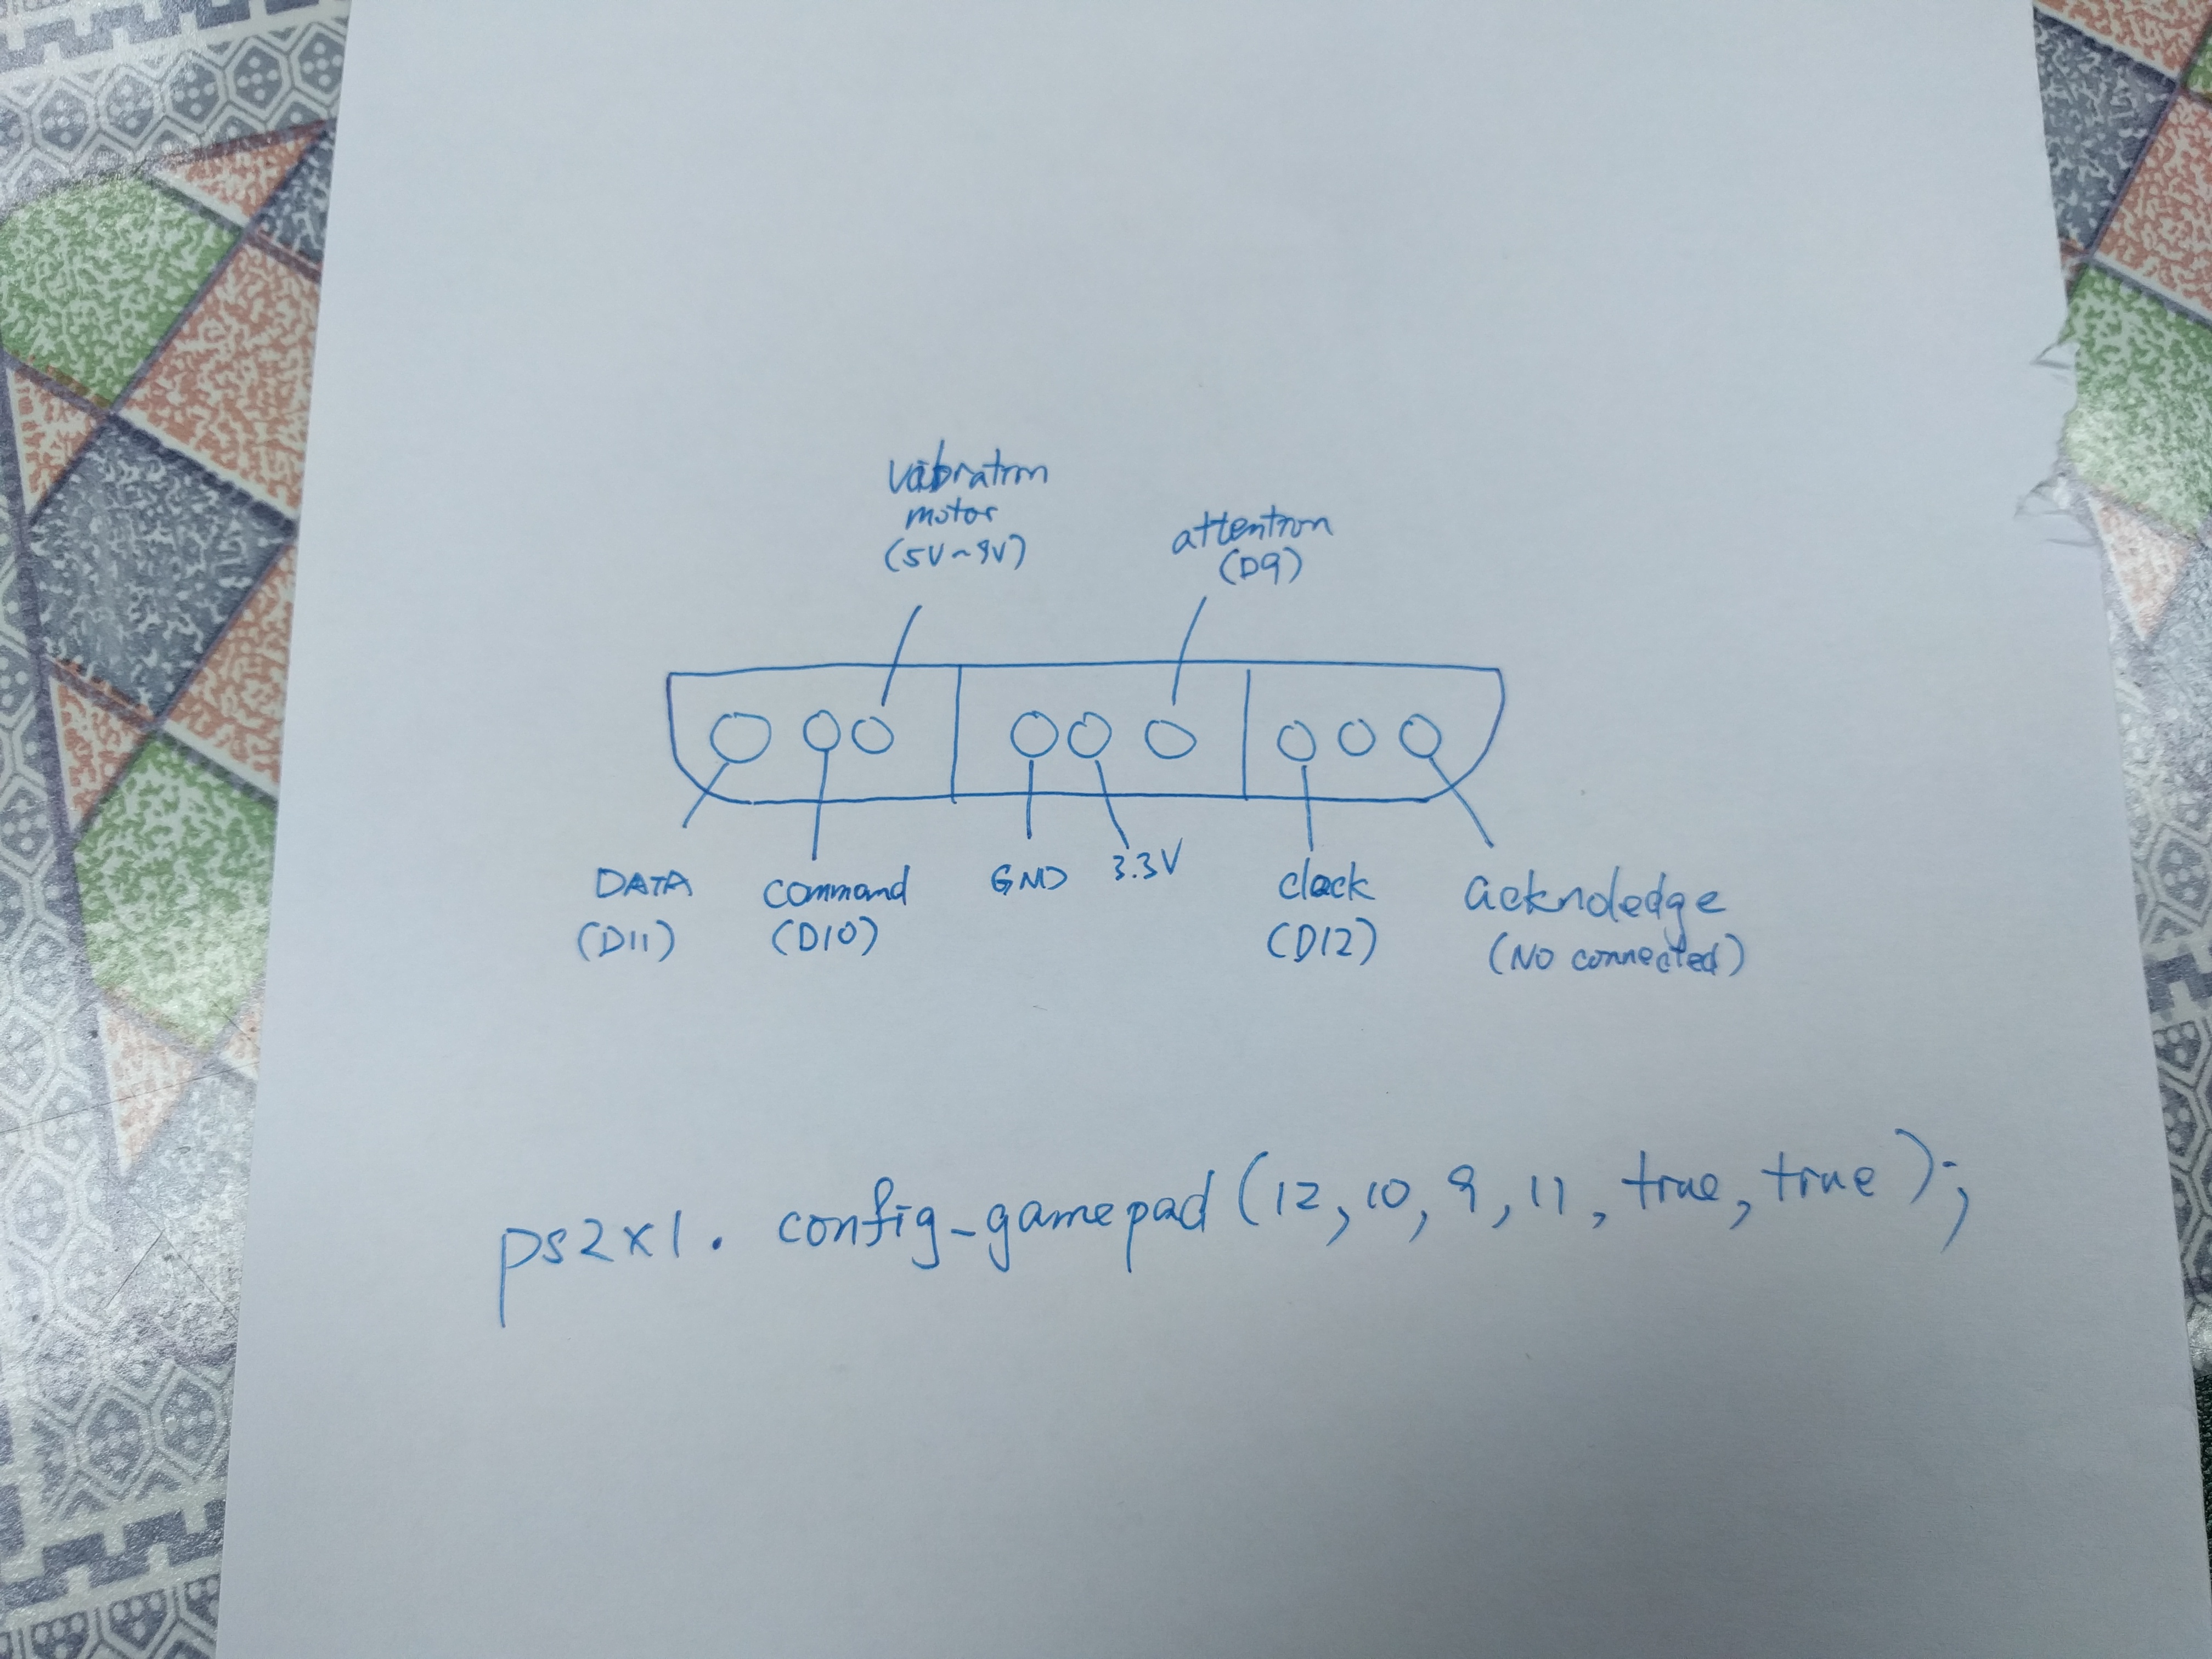 vibration
motor
(5V~9V)
attention
(D9)
DATA
(D11)
command
(D10)
GND
3.3V
clock
(D12)
acknoledge
(NO connected)
ps2x1. config_gamepad (12, 10, 9, 11, true, true);